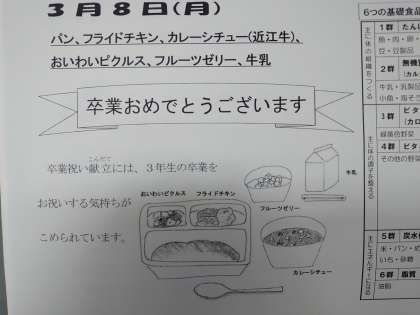 3月8日(月)
パン、フライドチキン、カレーシチュー(近江牛)、
おいわいピクルス、フルーツゼリー、牛乳
卒業おめでとうございます
こんだて
卒業祝い献立には、3年生の卒業を
お祝いする気持ちが
こめられています。
おいわいピクルス
フライドチキン
フルーツゼリー
牛乳
カレーシチュー
6つの基礎食品
主に体の組織をつくる
1群
たん
魚・肉・卵・
豆・豆製品
2群
無機
(カル
牛乳・乳製品
小魚・海そう
主に体の調子を整える
3群
ビタ
(カロ
緑黄色野菜
4群
ビタ
その他の野菜
主にエネルギーになる
5群
炭水
米・パン・め
いも・砂糖
6群
脂質
油脂